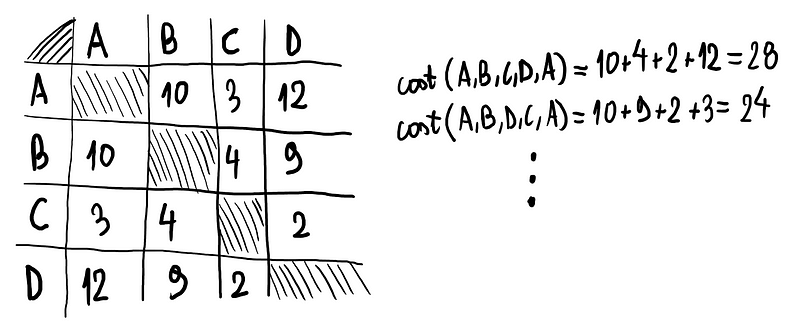 A B C D
A 10 3 12
B 10 4 9
C 3 4 2
D 12 9 2
cost(A,B,C,D,A)=10+4+2+12=28
cost(A,B,D,C,A)=10+9+2+3=24
⋮